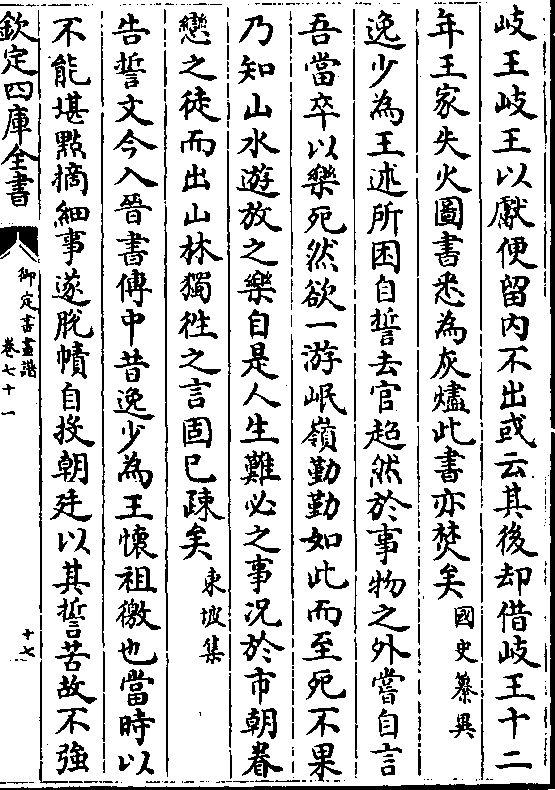 岐王岐王以獻便留内不出或云其後却借岐王十二
年王家失火圖書悉為灰燼此書亦焚矣國史纂異
逸少為王述所困自誓去官超然於事物之外嘗自言
吾當卒以樂死然欲一游岷嶺勤勤如此而至死不果
乃知山水遊放之樂自是人生難必之事况於市朝眷
戀之徒而出山林獨徃之言固已疎矣東坡集
告誓文今入晉書傳中昔逸少為王懷祖檄也當時以
不能堪㸃摘細事遂脱幘自投朝廷以其誓苦故不強
欽定四庫全書
御定書畫譜
卷七十一
十七